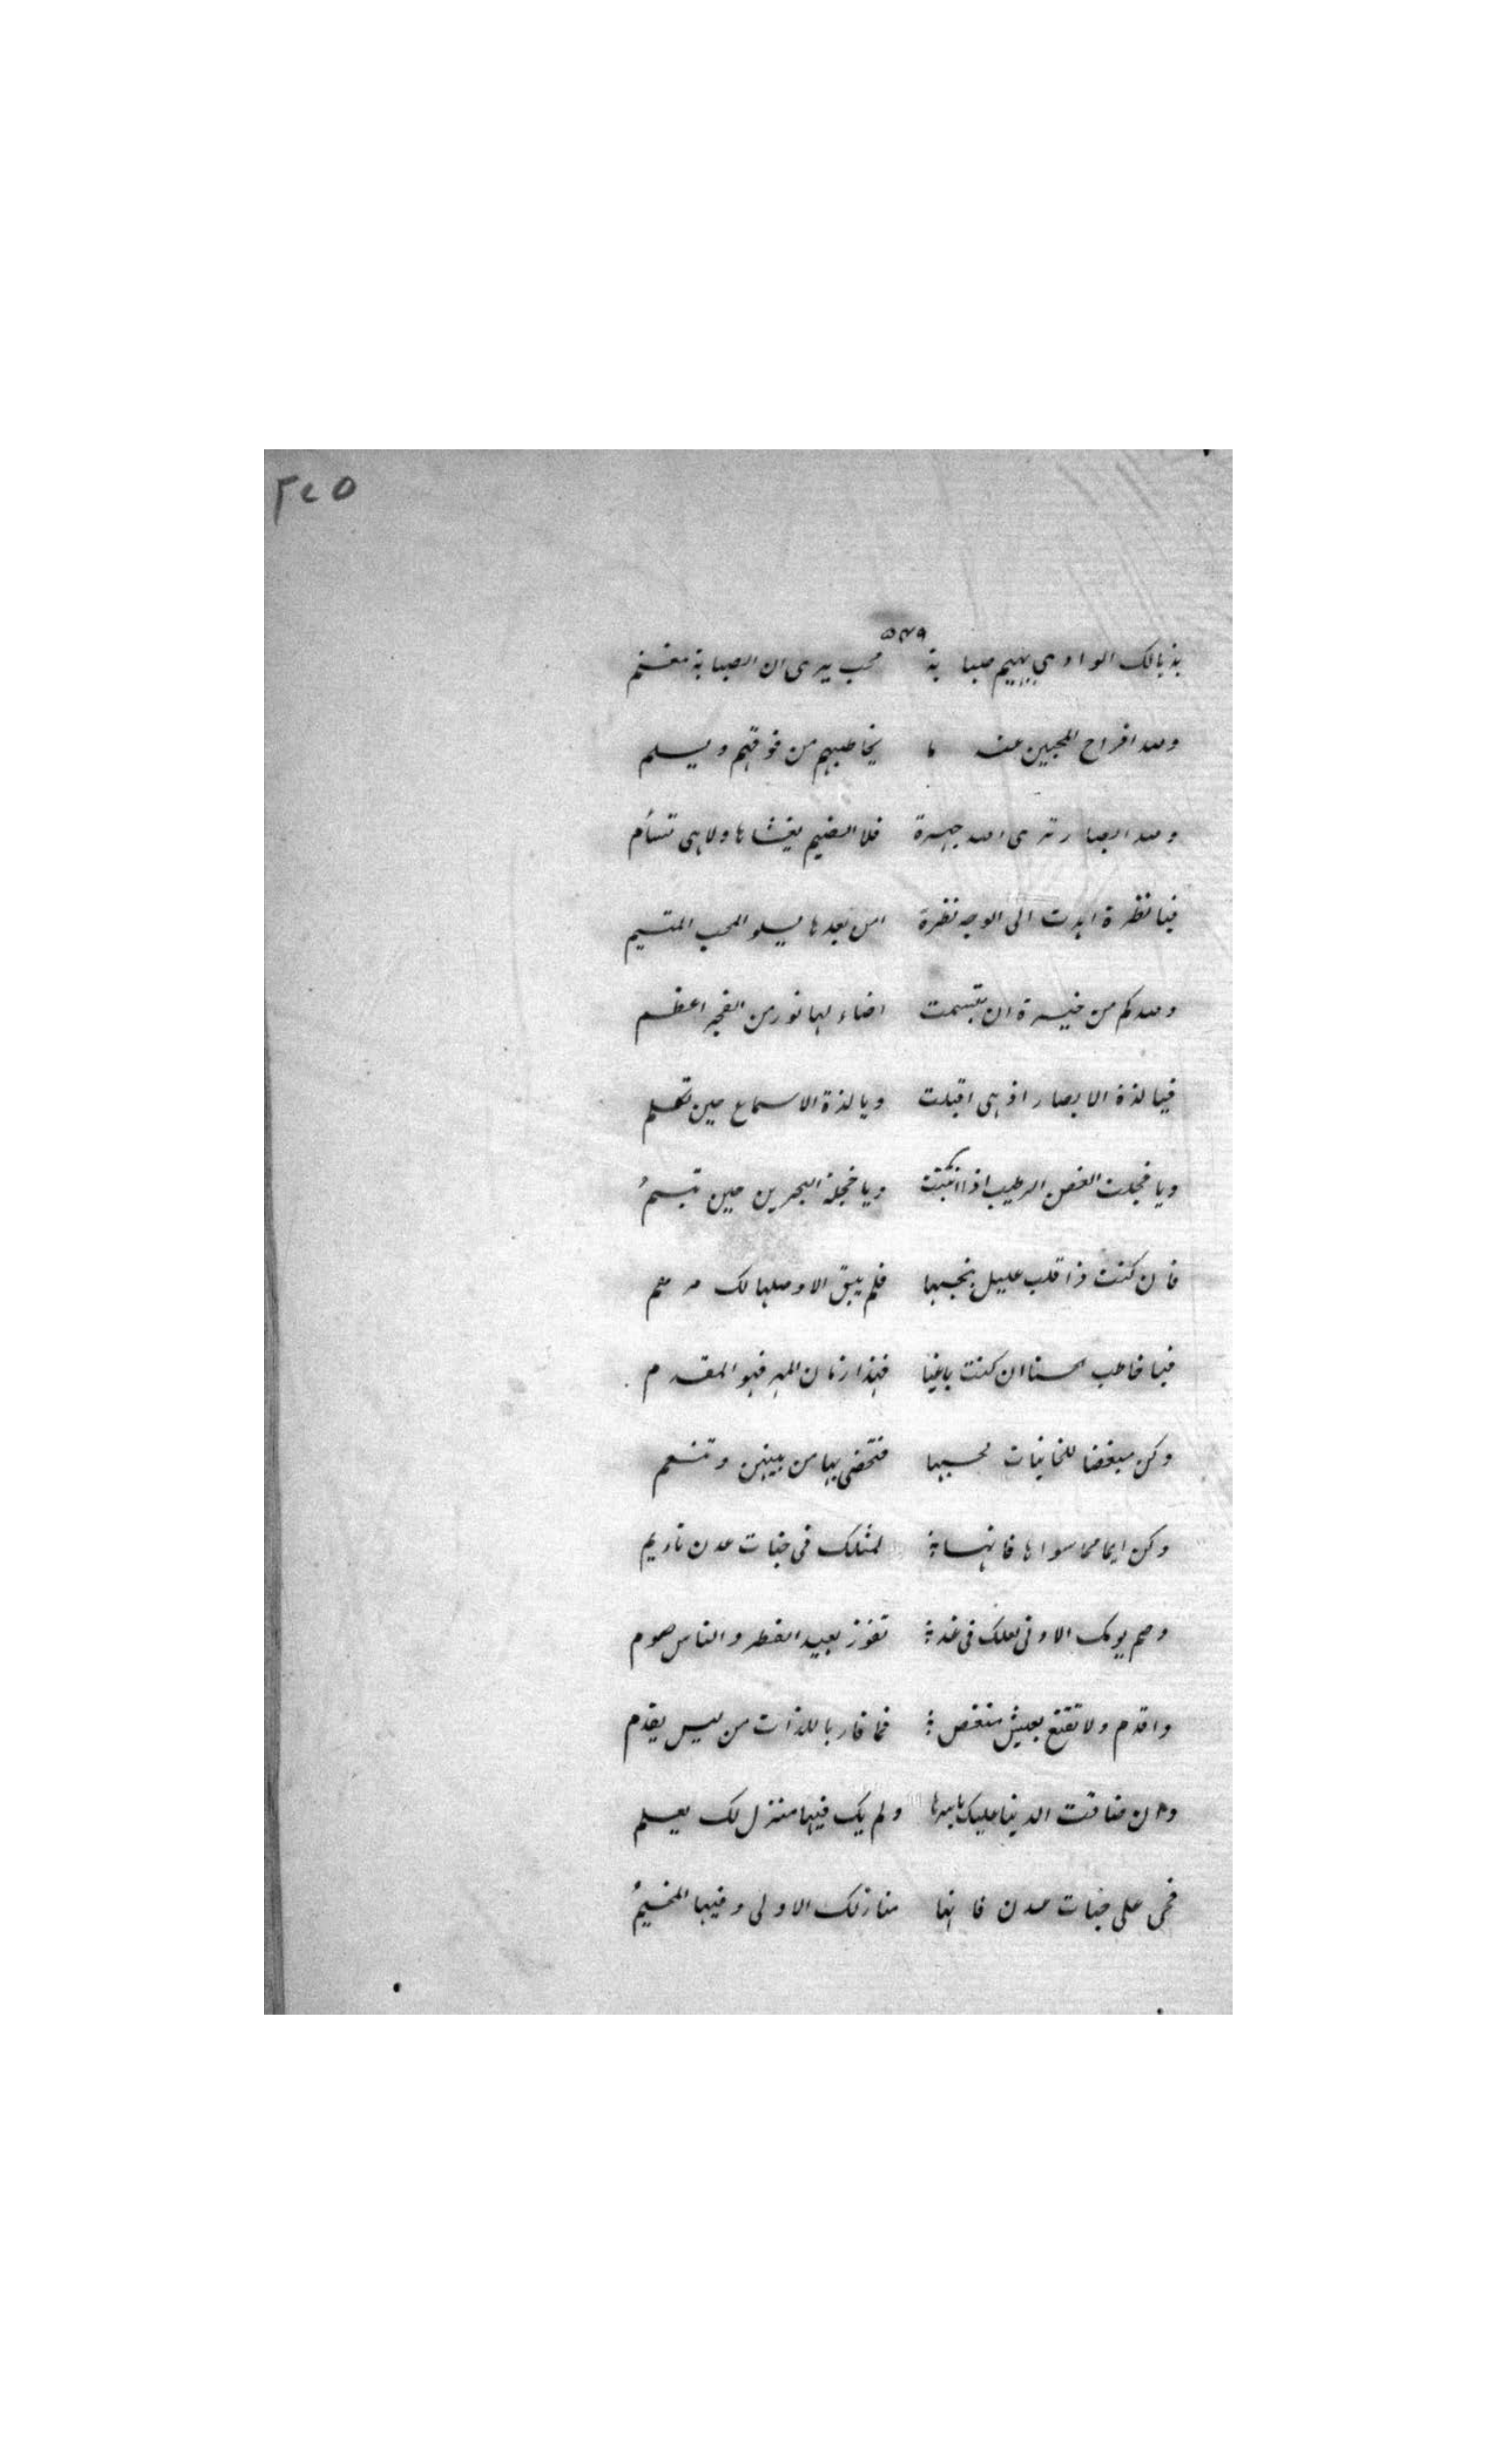 ٣٤٥
٥٣٩
بذيالك الوادي يهيم صبابة محب يرى ان الصبابة مغنم
ولله افراح المحبين عندما يخاطبهم من فوقهم ويسلم
ولله ابصار ترى الله جهرة فلا الضيم يغشاها ولا هي تسأم
فيا نظرة اهدت الى الوجه نظرة امن بعدها يسلو المحب المتيم
ولله كم من خيرة ان تبسمت اضاء لها نور من الفجر اعظم
فيا لذة الابصار اذ هي اقبلت ويا لذة الاسماع حين تكلم
ويا خجلت الغصن الرطيب اذا انثنت ويا خجلة البحرين حين تبسمُ
فان كنت ذا قلب عليل بحبها فلم يبق الا وصلها لك مرهم
فيا خاطب الحسنا ان كنت باغيا فهذا زمان المهر فهو المقدم
وكن مبغضا للخاينات لحبها فتحضى بها من بينهن وتنعم
وكن ايما مما سواها فانها لمثلك في جنات عدن تايم
وصم يومك الادنى لعلك في غد تفوز بعيد الفطر والناس صوم
واقدم ولا تقنع بعيش منغص فما فاز باللذات من ليس يقدم
وان ضاقت الدنيا عليك باسرها ولم يك فيها منزل لك يعلم
فحي على جنات عدن فانها منازلك الاولى وفيها المخيمُ